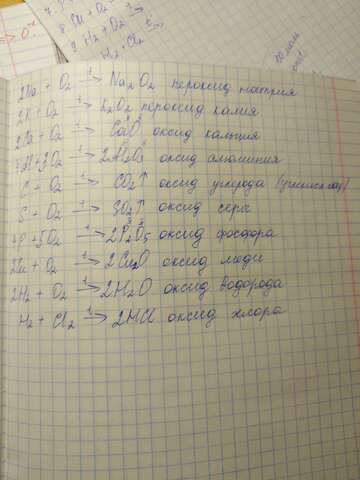 => 0°
8. Cu + O2
9. H2 + O2 t→
H2 + Cl2
2Na + O2 t→ Na2O2 пероксид натрия
2K + O2 t→ K2O2 пероксид калия
2Ca + O2 t→ CaO оксид кальция
4Al + 3O2 t→ 2Al2O3 оксид алюминия
C + O2 t→ CO2↑ оксид углерода
S + O2 t→ SO2↑ оксид серы
4P + 5O2 t→ 2P2O5 оксид фосфора
2Cu + O2 t→ 2CuO оксид меди
2H2 + O2 t→ 2H2O оксид водорода
H2 + Cl2 t→ 2HCl оксид хлора